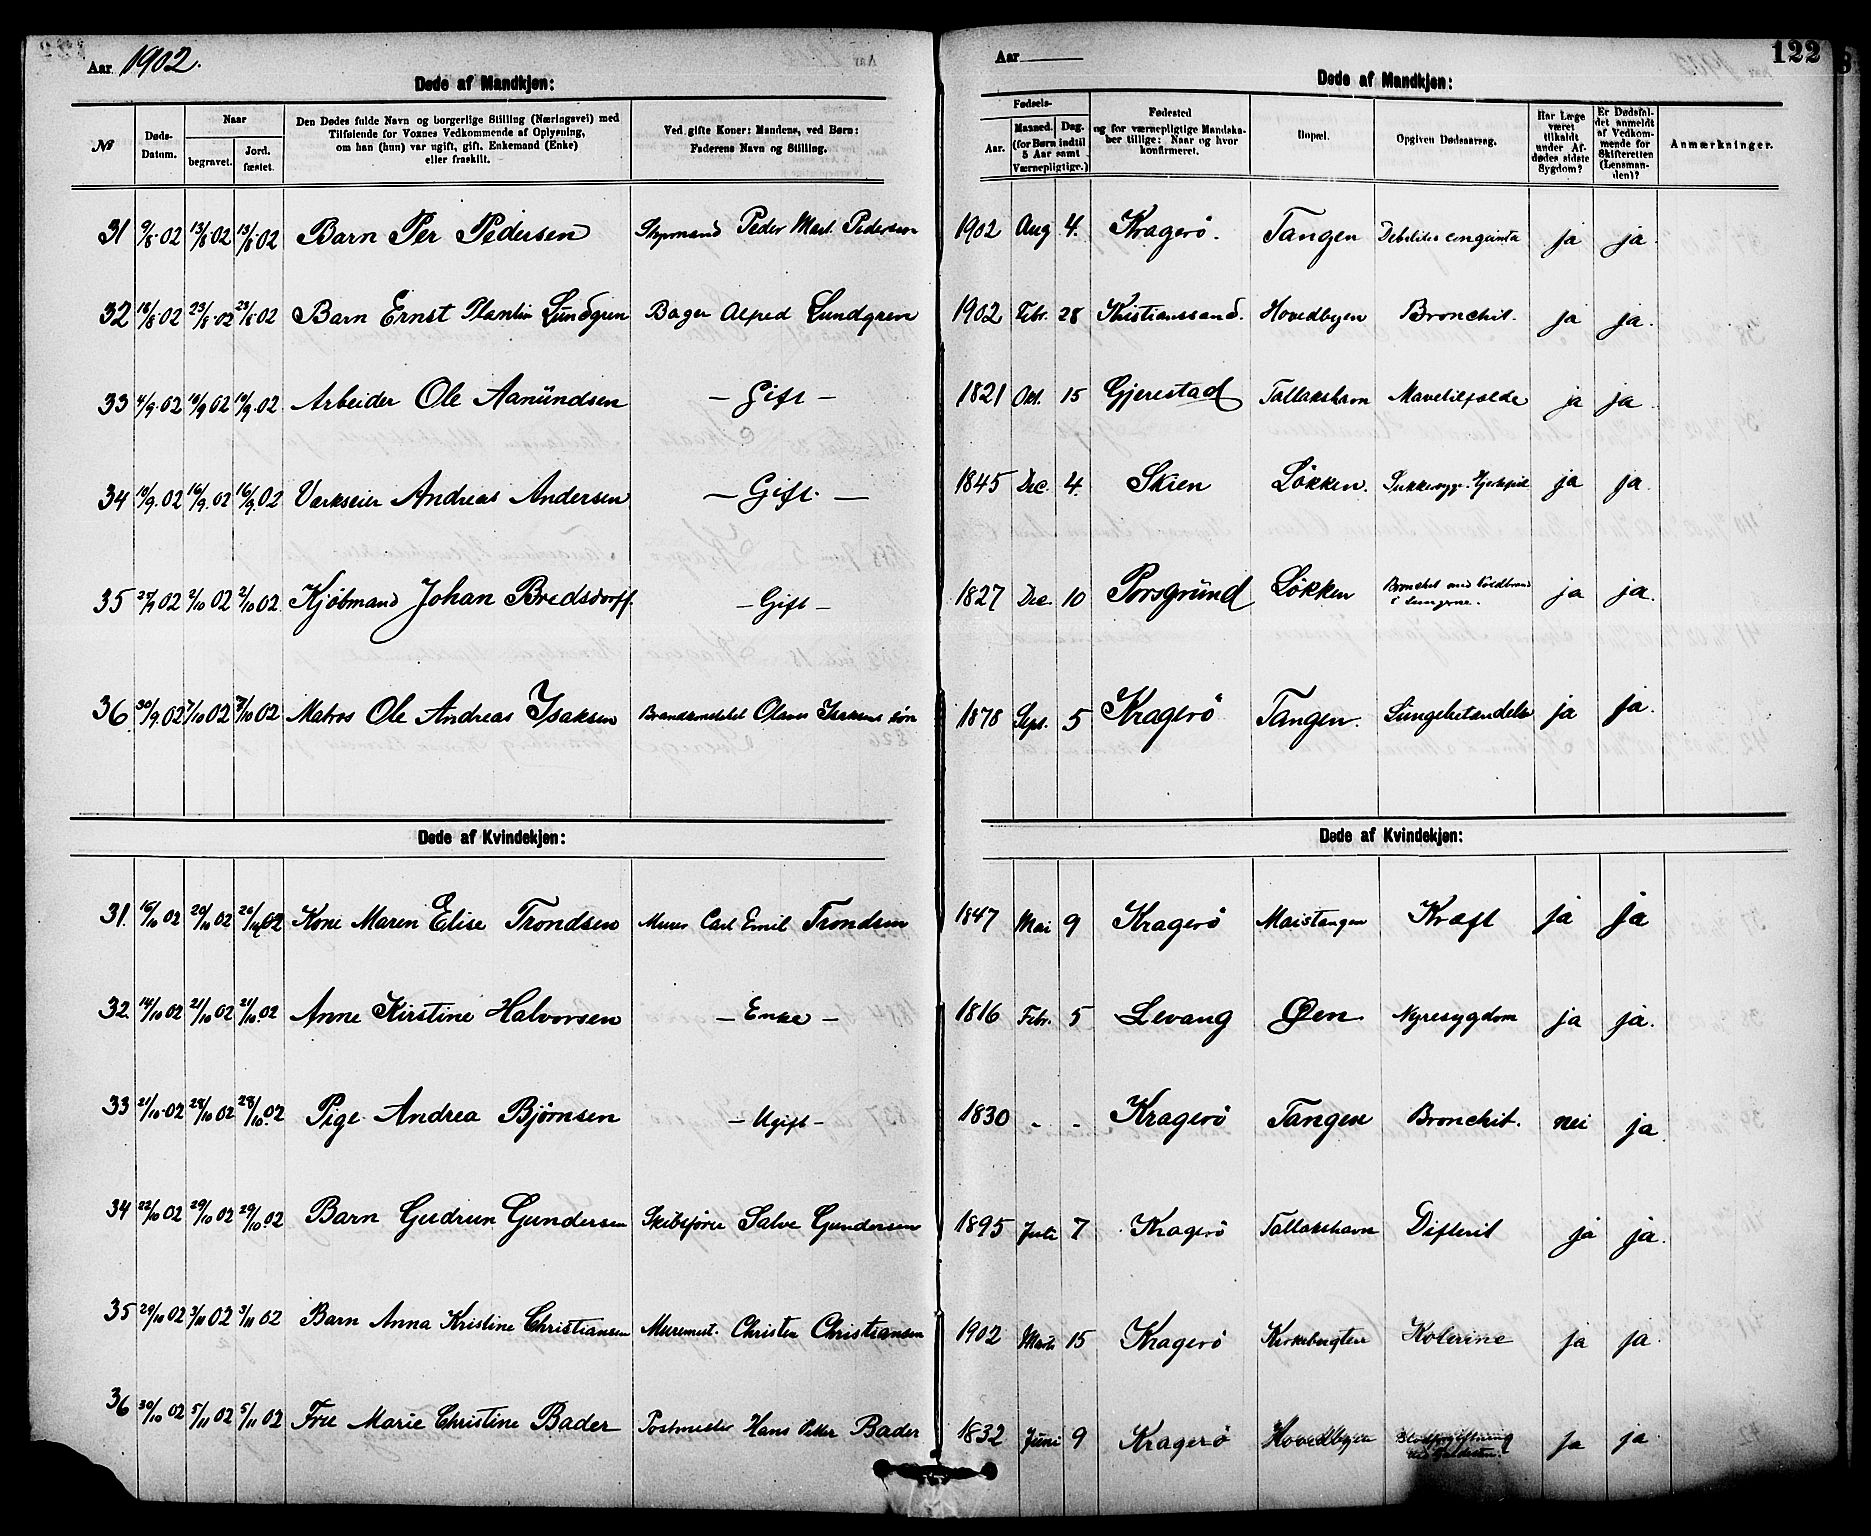 Aar 1902.
Døde af Mandkjøn:
№
Døds-Datum.
Naar
begravet.
Jord. fæstet.
Den Dødes fulde Navn og borgerlige Stilling (Næringsvei) med
Tilføiende for Voxnes Vedkommende af Oplysning,
om han (hun) var ugift, gift, Enkemand (Enke)
eller fraskilt.
Ved gifte Koner: Mandens, ved Børn:
Faderens Navn og Stilling.
31 9/8 02 13/8 02 13/8 02 Barn Per Pedersen Styrmand Peder Mart. Pedersen
32 18/8 02 23/8 02 23/8 02 Barn Ernst Plantin Lundgren Bager Alfred Lundgren
33 4/9 02 10/9 02 10/9 02 Arbeider Ole Aanundsen – Gift –
34 10/9 02 16/9 02 16/9 02 Værkseier Andreas Andersen – Gift. –
35 27/9 02 2/10 02 2/10 02 Kjøbmand Johan Bredsdorff. – Gift –
36. 30/9 02 7/10 02 7/10 02 Matros Ole Andreas Isaksen Olaves Isaksens søn
Døde af Kvindekjøn:
31. 16/10 02 20/10 02 20/10 02 Kone Maren Elise Trondsen Murer Carl Emil Trondsen
32 14/10 02 21/10 02 21/10 02 Anne Kirstine Halvorsen – Enke –
33 21/10 02 28/10 02 28/10 02 Pige Andrea Bjørnsen – Ugift –
34 22/10 02 29/10 02 29/10 02 Barn Gudrun Gundersen Skibsfører Salve Gundersen
35 29/10 02 3/11 02 3/11 02 Barn Anna Kristine Christiansen Murermest. Christen Christiansen
36 30/10 02 5/11 02 5/11 02 Fru Marie Christine Bader Postmester Hans Peter Bader
Aar
122
Døde af Mandkjøn:
Fødsels-
Aar.
Maaned. Dag.
(for Børn indtil
5 Aar samt
Værnepligtige.)
Fødested
og for værnepligtige Mandska-
ber tillige: Naar og hvor
konfirmeret.
Bopæl.
Opgiven Dødsaarsag.
Har Læge
været
tilkaldt
under Af-
dødes sidste
Sygdom?
Er Dødsfal-
det anmeldt
af Vedkom-
mende for
Skifteretten
(Lensman-
den)?
Anmærkninger.
1902 Aug 4. Kragerö. Tangen ja ja.
1902 Febr. 28 Kristianssand. Hovedbyen Bronchit. ja ja.
1821 Oct. 15 Gjerestad Tallakshavn Mavetilfælde ja ja
1845 Dec. 4. Skien Løkken. ja ja.
1827 Dec. 10 Porsgrund Løkken Bronchit med Koldbrand
i Lungerne. ja ja.
1878 Sept. 5 Kragerö Tangen. Lungebetændelse ja ja.
Døde af Kvindekjøn:
1847 Mai 9 Kragerö Maistangen Kræft ja ja
1816 Febr. 5 Levang Øen Nyresygdom ja ja.
1830 - - Kragerö Tangen Bronchit. nei ja
1895 Juli 7 Kragerö Tallakshavn Difterit ja ja.
1902 Marts 15 Kragerö Kirkebugten Kolerine ja ja.
1832 Juni 9 Kragerö Hovedbyen Blodforgiftning
ja ja.